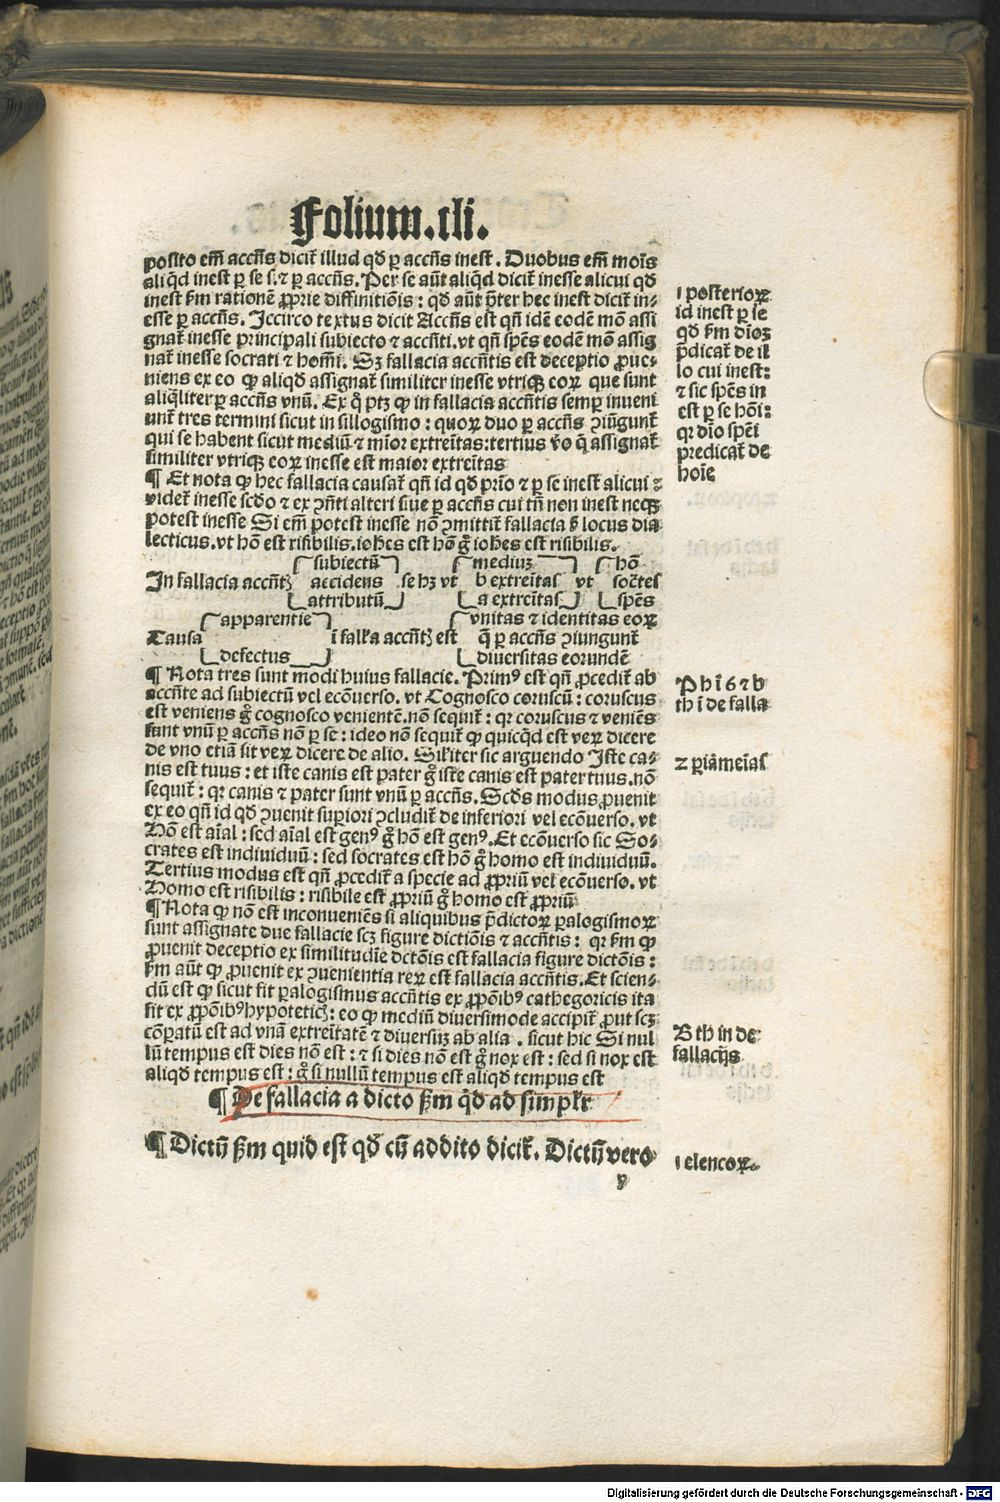 Folium.cli.
posito em̄ accn̄s dicit̄ illud qd̄ ꝑ accn̄s inest. Duobus em̄ mois̄
aliq̄d inest ꝑ se s. ⁊ ꝑ accn̄s. Per se aūt aliq̄d dicit̄ inesse alicui qd̄
inest ẜm rationē ꝓprie diffinitiōis : qd̄ aūt p̄ter hec inest dicit̄ in-
esse ꝑ accn̄s. Iccirco textus dicit Accn̄s est qn̄ idē eodē mō assi
gnat̄ inesse principali subiecto ⁊ accn̄ti. vt qn̄ spēs eodē mō assig
nat̄ inesse socrati ⁊ hom̄i. Sꝫ fallacia accn̄tis est deceptio ꝓue-
niens ex eo ꝙ aliqd̄ assignat̄ similiter inesse vtriqꝫ eoꝝ que sunt
aliq̄liter ꝑ accn̄s vnū. Ex q̊ ptꝫ ꝙ in fallacia accn̄tis semꝑ inueni
unt̄ tres termini sicut in sillogismo : quoꝝ duo ꝑ accn̄s ↄiūgunt̄
qui se habent sicut mediū ⁊ mīor extreītas: tertius v̊o q̄ assignat̄
similiter vtriqꝫ eoꝝ inesse est maior extreītas
¶ Et nota ꝙ hec fallacia causat̄ qn̄ id qd̄ prīo ⁊ ꝑ se inest alicui ⁊
videt̄ inesse scd̄o ⁊ ex ↄn̄ti alteri siue ꝑ accn̄s cui tn̄ non inest neqꝫ
potest inesse Si em̄ potest inesse nō ↄmittit̄ fallacia s̄ locus dia
lecticus. vt hō est risibilis. ioh̄es est hō g̊ ioh̄es est risibilis.
subiectū mediuꝫ hō
In fallacia accn̄tꝭ accidens se hꝫ vt b extreītas vt socr̄tes
attributū a extreītas spēs
apparentie vnitas ⁊ identitas eoꝝ
Causa ī falĺa accn̄tꝭ est q̄ ꝑ accn̄s ↄiungunt̄
defectus diuersitas eorundē
¶ Nota tres sunt modi huius fallacie. Primꝰ est qn̄ ꝓcedit̄ ab
accn̄te ad subiectū vel ecōuerso. vt Cognosco coruscū : coruscus
est veniens g̊ cognosco venientē. nō sequit̄ : qꝛ coruscus ⁊ veniēs
sunt vnū ꝑ accn̄s nō ꝑ se : ideo nō sequit̄ ꝙ quicq̄d est veꝝ dicere
de vno etiā sit veꝝ dicere de alio. Siĺiter sic arguendo Iste ca-
nis est tuus : et iste canis est pater g̊ iste canis est pater tuus. nō
sequit̄ : qꝛ canis ⁊ pater sunt vnū ꝑ accn̄s. Scd̄s modus ꝓuenit
ex eo qn̄ id qd̄ ↄuenit supiori ↄcludit̄ de inferiori vel ecōuerso. vt
Hō est aīal : sed aīal est genꝰ g̊ hō est genꝰ. Et ecōuerso sic So-
crates est indiuiduū : sed socrates est hō g̊ homo est indiuiduū.
Tertius modus est qn̄ ꝓcedit̄ a specie ad ꝓpriū vel ecōuerso. vt
Homo est risibilis : risibile est ꝓpriū g̊ homo est ꝓpriū
¶ Nota ꝙ nō est inconueniēs si aliquibus p̄dictoꝝ ꝑalogismoꝝ
sunt assignate due fallacie scꝫ figure dictiōis ⁊ accn̄tis : qꝛ ẜm ꝙ
ꝓuenit deceptio ex similitudīe dctōnis est fallacia figure dictōnis :
ẜm aūt ꝙ ꝓuenit ex ↄuenientia reꝝ est fallacia accn̄tis. Et scien-
dū est ꝙ sicut fit ꝑalogismus accn̄tis ex ꝓpōibꝰ cathegoricis ita
fit ex ꝓpōibꝰ hypoteticꝭ : eo ꝙ mediū diuersimode accipit̄ ꝓut scꝫ
cōꝑatū est ad vnā extreītatē ⁊ diuersuꝫ ab alia . sicut hic Si nul
lū tempus est dies nō est : ⁊ si dies nō est g̊ nox est : sed si nox est
aliqd̄ tempus est : g̊ si nullū tempus est aliqd̄ tempus est
¶ De fallacia a dicto ẜm q̄d ad simplr̄
¶ Dictū ẜm quid est qd̄ cū addito dicit̄. Dictū vero
y
1 posterioꝝ
id inest ꝑ se
qd̄ ẜm dīoꝫ
p̄dicat̄ de il
lo cui inest:
⁊ sic spēs in
est ꝑ se hōi:
qꝛ dīo spēi
predicat̄ de
hoīe
Ph ī 6 ⁊ b
th ī de falla
2 ꝑiāmeīas
B th in de
fallacijs
1 elencoꝝ.
Digitalisierung gefördert durch die Deutsche Forschungsgemeinschaft - DFG